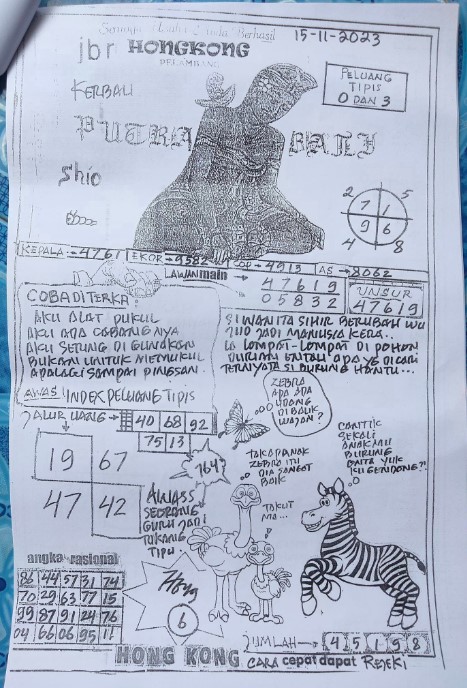 Semoga Usaha Anda Berhasil
15-11-2023
jbr HONGKONG
PELUANG
TIPIS
0 DAN 3
KERBAU
PUTRA
Shio
2 5
7 1
9 6
4 8
KEPALA→4761 EKOR→9582 COP→4913 AS→8062
LAWAN main → 47619
05832
UNSUR
47619
COBA DITERKA:
AKU ALAT PUKUL
AKU ADA CABANG NYA
AKU SETUNG DI GUNAKAN
BUKAN UNTUK MEMUKUL
APALAGI SAMPAI PINGSAN.
SI WANITA SIHIR BERUBAH WU
JUD JADI MANUSIA KERA..
IA LOMPAT-LOMPAT DI POHON
DURIAN ENTAH APA YG DI CARI
TERNYATA SI BURUNG HANTU...
AWAS INDEX PELUANG TIPIS
JALUR UANG → 40 68 92
75 13
19 67
47 42
764
AWASS
SEORANG
GURU JADI
TUKANG
TIPU.
ZEBRA
ADA APA
UDANG
DI BALIK
WAJAN?
TAK APA NAK
ZEBRA ITU
DIA SANGAT
BAIK
TAKUT
MA...
CANTIK
SEKALI
ANAKMU
BURUNG
KU GENDONG?!
angka rasional
86 44 57 31 74
70 29 63 77 15
99 87 91 24 76
04 66 06 95 11
6
JUMLAH → 4 5 1 9 8
HONG KONG CARA cepat dapat REJEKI